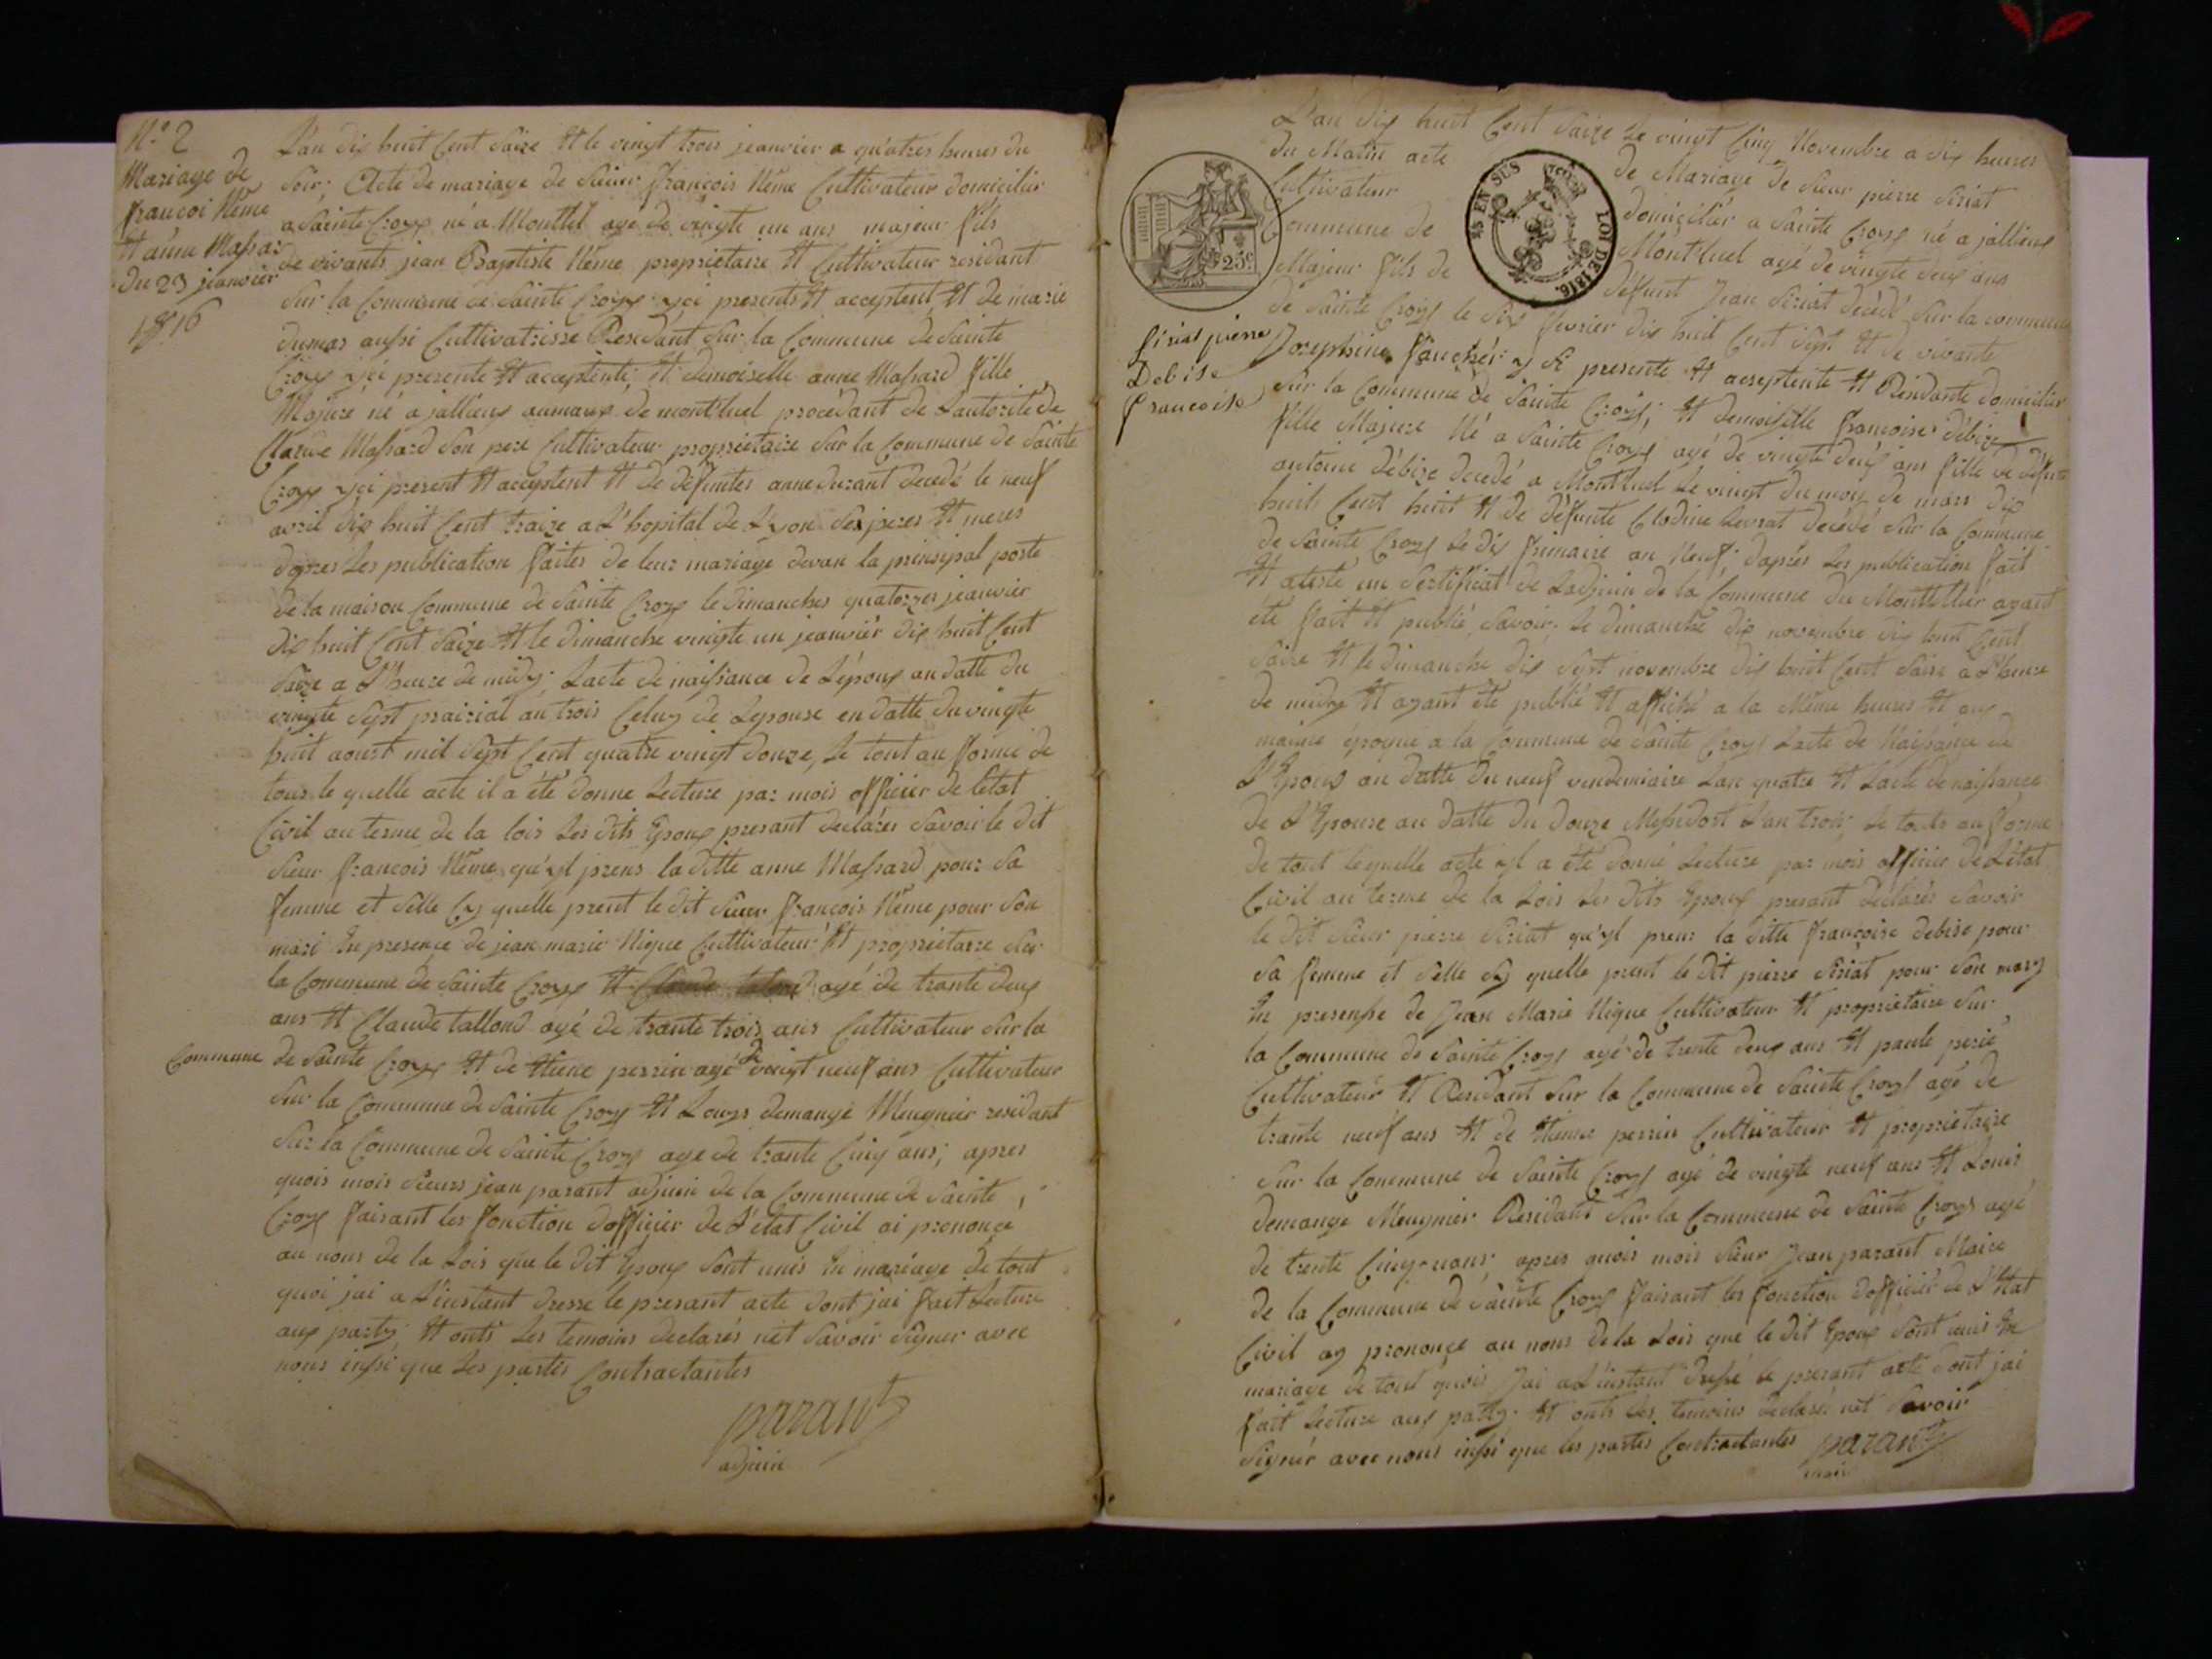 N.o 2
Mariage de
françoi Néme
Et anne Massar
du 23 jeanvier
1816
L'an dix huit Cent Saize Et le vingt trois jeanvier a quatres heures du
Soir; Acte de mariage de Sieur françois Néme Cultivateur domicilier
a Sainte Croys né a Montlel agé de vingte un ans majeur fils
de vivants jean Baptiste Néme propriétaire Et Cultivateur residant
Sur la Commune de Sainte Croys yci presents Et acceptent Et de marie
dumas aussi Cultivatrisse Residant Sur la Commune de Sainte
Croys yci presente Et acceptente; Et demoiselle anne Massard fille
Majure né a jallieux de montluel procédant de Lautorité de
Claude Massard Son pere Cultivateur propriétaire Sur la Commune de Sainte
Croys yci present Et acceptent Et de défuntes anne durant decedé le neuf
avril dix huit Cent traize a L'hopital de Lyon Ses peres Et meres
dapres Les publication faites de leur mariage devan la prinsipal porte
de la maison Commune de Sainte Croys le dimanches quatorzes jeanvier
dix huit Cent Saize Et le dimanche vingte un jeanvier dix huit Cent
Saize a L'heure de midy; Lacte de naissance de Lépoux an datte du
vingte Sept prairial an trois Celuy de Lepouse en datte du vingte
huit aoust mil Sept Cent quatre vingt douze, Le tout an forme de
tous le quelle acte il a été donne Lecture par mois officier de Létat
Civil au terme de la lois Les dits Epoux presant declarés Savoir le dit
Sieur françois Néme qu'yl prens la ditte anne Massard pour Sa
femme et Selle Cy quelle prent le dit Sieur françois Néme pour Son
mari En presence de jean marie Nique Cultivateur Et propriétaire Sur
la Commune de Sainte Croys Et agé de trante deux
ans Et Claude tallond agé de trante trois ans Cultivateur Sur la
Commune de Sainte Croys Et de Etiene perrin agé de vingt neuf ans Cultivateur
Sur la Commune de Sainte Croys Et Louys demange Meugnier residant
Sur la Commune de Sainte Croys age de trante Cinq ans; apres
quois mois Sieurs jean parant adjoin de la Commune de Sainte
Croys faisant les fonction dofficier de L'état Civil ai prononçe
au nons de la Lois que le dit Epoux Sont unis En mariage de tout
quoi jai a L'instant dresse le presant acte dont jai fait Lecture
aux party Et onts Les temoins declarés net Savoir Signer avec
nous insi que Les parties Contractantes
parant
adjoin
L'an dix huit Cent Saize Le vingt Cinq Novembre a dix heures
du Matin acte de Mariage de Sieur pierre Siriat
Cultivateur domicilier a Sainte Croys né a jallieux
Commune de Montluel agé de vingte deux ans
Majeur fils de défunt Jean Siriat decedé Sur la commune
de Sainte Croys le dix fevrier dix huit Cent Sept Et de vivante
25c
25 EN SUS
LOI DE 1816.
Siriat pierre
Debise
françoise
Josephine fauchér y Si presente Et acceptente Et Residante domicilier
Sur la Commune de Sainte Croys; Et demoiselle françoise débize
fille Majeure Né a Sainte Croys agé de vingte deux ans fille de défunt
antoine débize decedé a Montluel Le vingt du moy de mars dix
huit Cent huit Et de défunte Clodine Levrat decédé Sur la Commune
de Sainte Croys Le dix frimaire an Neuf; dapres Les publication fait
Et atesté un Sertificat de Ladjoin de la Commune du Montellier ayant
été fait Et publié, Savoir; Le dimanche dix novembre dix huit Cent
Saize Et le dimanche dix Sept novembre dix huit Cent Saize a L'heure
de midy Et ayant été publié Et affiché a la Même heures Et aux
maime epoque a la Commune de Sainte Croys Lacte de Naissance de
L'Epoux an datte du neuf vendemiaire Lan quatre Et Lacte de naissance
de L'Epouse an datte du douze Messedort Lan trois; Le touts an forme
de tout lequelle acte yl a été donné Lecture par mois officier de Létat
Civil au terme de la Lois Les dits Epoux presant déclarés Savoir
le dit Sieur pierre Siriat qu'yl prens la ditte françoise debise pour
Sa femme et Selle Sy quelle prent le dit pierre Siriat pour Son mary
En presense de Jean Marie Nique Cultivateur Et propriétaire Sur
la Commune de Sainte Croys agé de trente deux ans Et paule perié
Cultivateur Et Residant Sur la Commune de Sainte Croys agé de
trante neuf ans Et de Etienne perrin Cultivateur Et propriétaire
Sur la Commune de Sainte Croys agé de vingte neuf ans Et Louis
demange Meugnier Residant Sur la Commune de Sainte Croys agé
de trente Cinq ans; apres quois mois Sieur Jean parant Maire
de la Commune de Sainte Croys faisant les fonction dofficier de L'Etat
Civil ay prononçe au nons de la Lois que le dit Epoux Sont unis En
mariage de tout quois Jai a L'instant dressé Le presant acte dont jai
fait Lecture aux party Et onts Les temoins declarés net Savoir
Signér avec nous insi que les parties Contractantes parant
maire